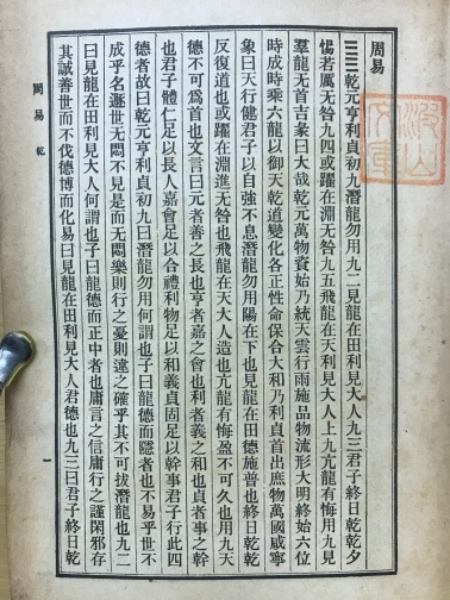 周易
䷀乾元亨利貞初九潛龍勿用九二見龍在田利見大人九三君子終日乾乾夕
惕若厲无咎九四或躍在淵无咎九五飛龍在天利見大人上九亢龍有悔用九見
羣龍无首吉彖曰大哉乾元萬物資始乃統天雲行雨施品物流形大明終始六位
時成時乘六龍以御天乾道變化各正性命保合大和乃利貞首出庶物萬國咸寧
象曰天行健君子以自強不息潛龍勿用陽在下也見龍在田德施普也終日乾乾
反復道也或躍在淵進无咎也飛龍在天大人造也亢龍有悔盈不可久也用九天
德不可爲首也文言曰元者善之長也亨者嘉之會也利者義之和也貞者事之幹
也君子體仁足以長人嘉會足以合禮利物足以和義貞固足以幹事君子行此四
德者故曰乾元亨利貞初九曰潛龍勿用何謂也子曰龍德而隱者也不易乎世不
成乎名遯世无悶不見是而无悶樂則行之憂則違之確乎其不可拔潛龍也九二
曰見龍在田利見大人何謂也子曰龍德而正中者也庸言之信庸行之謹閑邪存
其誠善世而不伐德博而化易曰見龍在田利見大人君德也九三曰君子終日乾
周易 乾
一